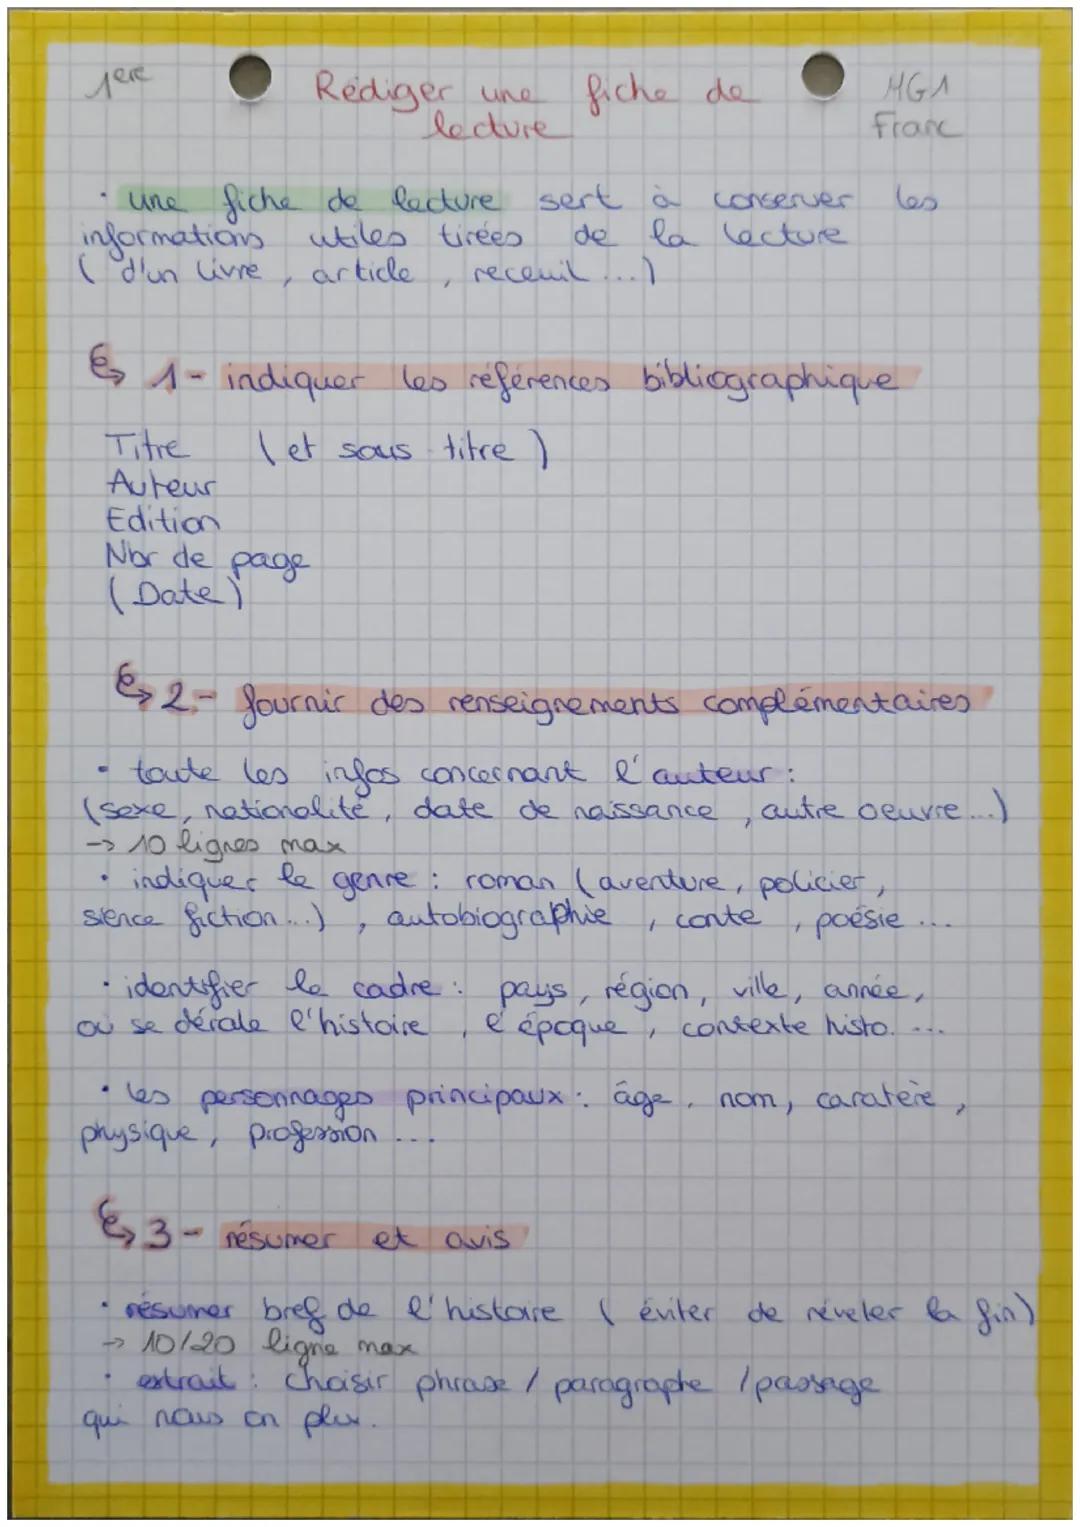 1ere
Rédiger une fiche de
lecture
HG1
Franc
· une fiche de lecture sert à conserver les
informations utiles tirées de la lecture
( d'un livre, article, receuil ...)
1- indiquer les références bibliographique
Titre (et sous-titre)
Auteur
Edition
Nbr de page
(Date)
2- fournir des renseignements complémentaires
· toute les infos concernant l'auteur :
(sexe, nationalité, date de naissance, autre oeuvre...)
-> 10 lignes max
· indiquer le genre : roman (aventure, policier,
sience fiction...), autobiographie, conte, poésie ...
· identifier le cadre : pays, région, ville, année,
où se dérale l'histoire, l'époque, contexte histo. ...
· les personnages principaux : âge, nom, caratère,
physique, profession ...
3- résumer et avis
· résumer bref de l'histoire (éviter de réveler la fin)
-> 10/20 ligne max
· extrait : choisir phrase / paragraphe / passage
qui nous on plu.